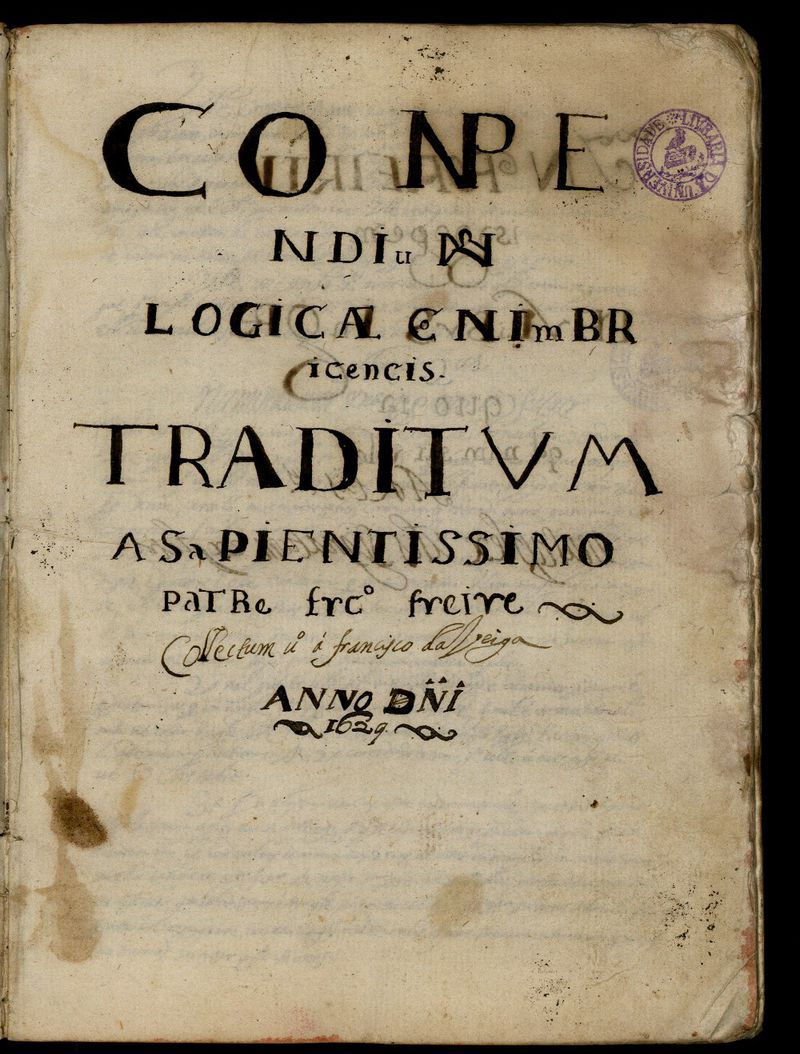 CONPE
NDIu M
LOGICÆ CENIMBR
icencis.
TRADITVM
A SaPIENTISSIMO
PaTRe frc° freire
Collectum u° á francisco da Veiga
ANNO DÑI
1629
LIVRARIA DA UNIVERSIDADE